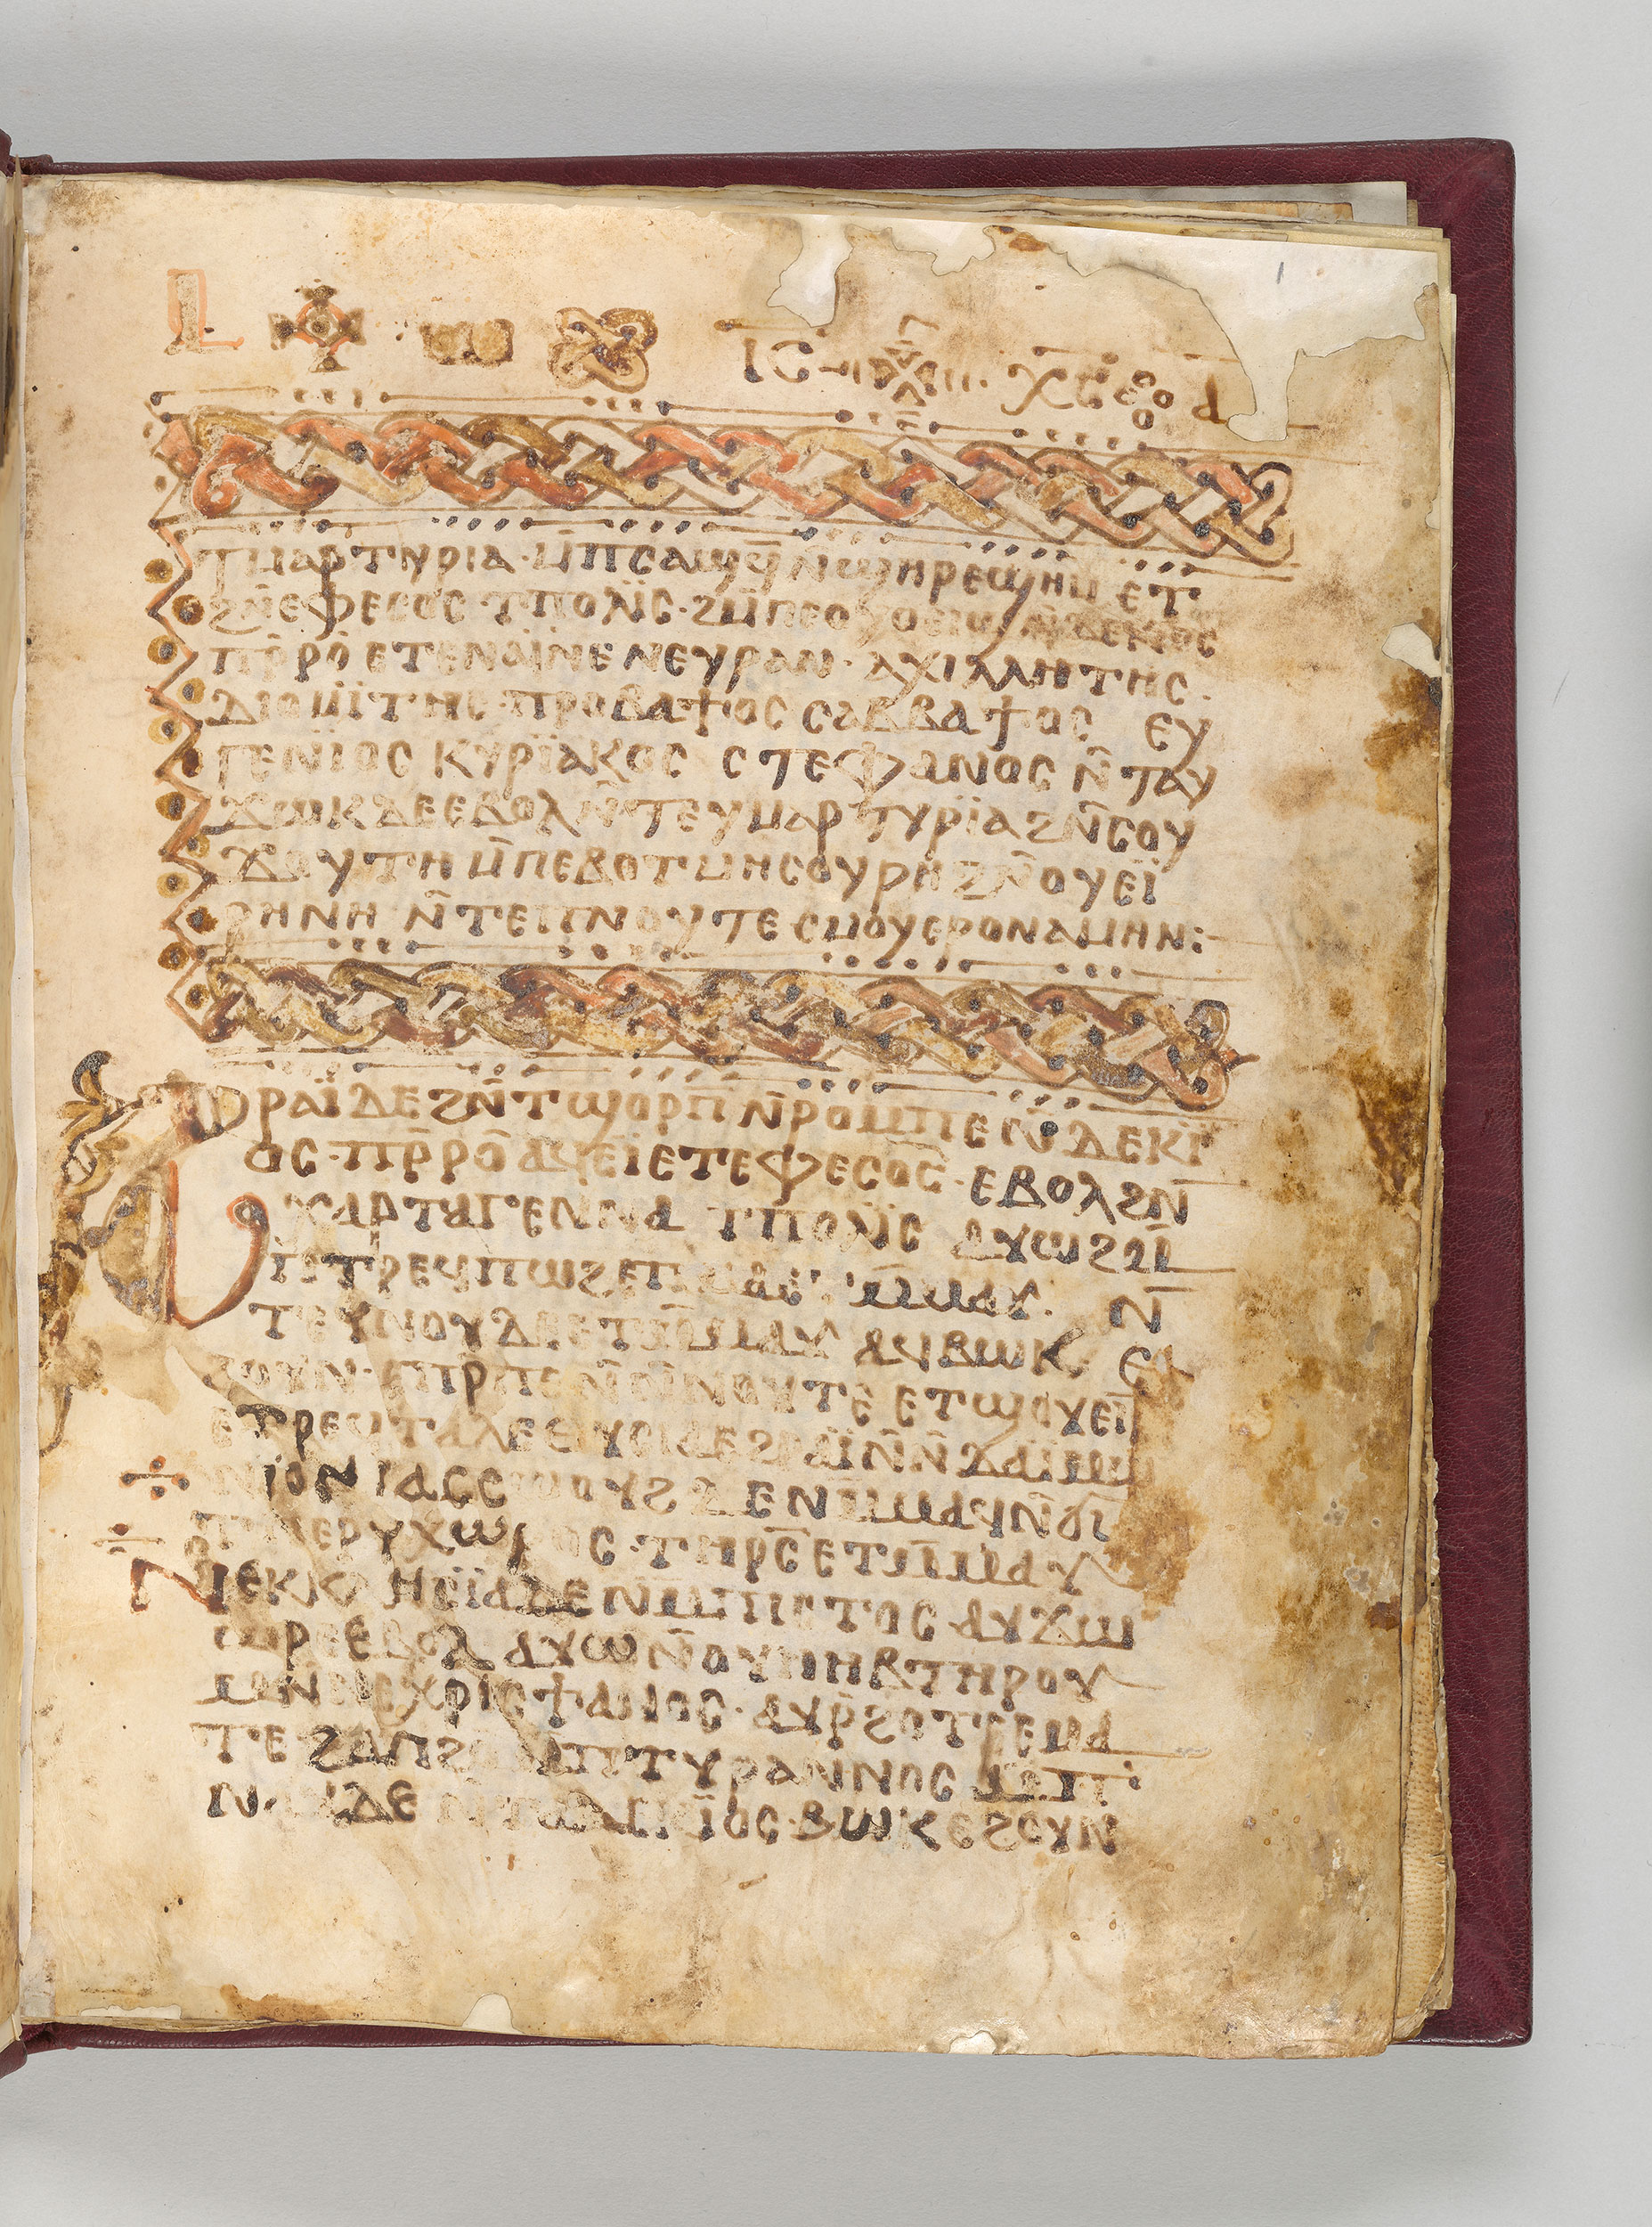 ⲓ̅ⲥ̅ ⲭ̅ⲥ̅ ⲁ
ⲧⲙⲁⲣⲧⲩⲣⲓⲁ · ⲙ̅ⲡⲥⲁϣϥ̅ ⲛ̅ϣⲏⲣⲉϣⲏⲙ ⲉⲧ
ϩⲛ̅ⲉⲫⲉⲥⲟⲥ · ⲧⲡⲟⲗⲓ̈ⲥ · ϩⲙ̅ⲡⲉⲟⲩⲟⲉⲓϣ ⲛ̅ⲇⲉⲕⲓⲟⲥ
ⲡⲣ̅ⲣⲟ ⲉⲧⲉⲛⲁⲓ̈ⲛⲉ ⲛⲉⲩⲣⲁⲛ · ⲁⲭⲓⲗⲗⲏⲧⲏⲥ ·
ⲇⲓⲟⲙⲓ̈ⲧⲏⲥ · ⲡⲣⲟⲃⲁϯⲟⲥ ⲥⲁⲃⲃⲁϯⲟⲥ ⲉⲩ
ⲅⲉⲛⲓ̈ⲟⲥ ⲕⲩⲣⲓ̈ⲁⲕⲟⲥ ⲥⲧⲉⲫⲁⲛⲟⲥ ⲛ̅ⲧⲁⲩ
ϫⲱⲕ ⲇⲉ ⲉⲃⲟⲗ ⲛ̅ⲧⲉⲩⲙⲁⲣⲧⲩⲣⲓ̈ⲁ ϩⲛ̅ⲥⲟⲩ
ϫⲟⲩⲧⲏ ⲙ̅ⲡⲉⲃⲟⲧ ⲙⲏⲥⲟⲩⲣⲏ ϩⲛ̅ⲟⲩⲉⲓ̈
ⲣⲏⲛⲏ ⲛ̅ⲧⲉⲡⲛⲟⲩⲧⲉ ⲥⲙⲟⲩ ⲉⲣⲟⲛ ⲁⲙⲏⲛ :-
ϩⲣⲁⲓ̈ ⲇⲉ ϩⲛ̅ⲧϣⲟⲣⲡ̅ ⲛ̅ⲣⲟⲙⲡⲉ ⲛ̅ⲇⲉⲕⲓ̈
ⲟⲥ · ⲡⲣ̅ⲣⲟ ⲁϥⲉⲓ̈ ⲉⲧⲉⲫⲉⲥⲟⲥ · ⲉⲃⲟⲗϩⲛ
ⲭⲁⲣⲧⲁⲅⲉⲛⲛⲁ ⲧⲡⲟⲗⲓ̈ⲥ ⲁⲩⲱ ϩⲙ̅
ⲡⲧⲣⲉϥⲡⲱϩ ⲉⲡⲙⲁ ⲉⲧⲙ̅ⲙⲁⲩ · ⲛ̅
ⲧⲉⲩⲛⲟⲩ ⲇⲉ ⲉⲧⲙ̅ⲙⲁⲩ ⲁϥⲃⲱⲕ ⲉ
ϩⲟⲩⲛ · ⲉⲡⲣ̅ⲡⲉ ⲛ̅ⲛ̅ⲛⲟⲩⲧⲉ ⲉⲧϣⲟⲩⲉⲓⲧ
ⲉⲧⲣⲉϥⲧⲁⲗⲉ ⲑⲩⲥⲓⲁ ⲉϩⲣⲁⲓ̈ ⲛ̅ⲛ̅ⲇⲁⲓ̈ⲙⲱ
ⲛⲓⲟⲛ ⲁⲥⲥⲱⲟⲩϩ ϩⲉⲛⲙ̅ⲙⲁϥ ⲛ̅ϭⲓ
ⲧⲡⲉⲣⲩⲭⲱⲣⲟⲥ · ⲧⲏⲣⲥ̅ ⲉⲧⲙ̅ⲙⲁⲩ
ⲛⲉⲕⲕⲗⲏⲥⲓ̈ⲁ ⲇⲉ ⲛ̅ⲙ̅ⲡⲓⲥⲧⲟⲥ ⲁⲩϫⲱ
ⲱⲣⲉ ⲉⲃⲟⲗ ⲁⲩⲱ ⲛ̅ⲟⲩⲏⲏⲃ ⲧⲏⲣⲟⲩ
ⲙⲛ̅ⲛⲉⲭⲣⲓⲥϯⲁⲛⲟⲥ · ⲁⲩⲣ̅ϩⲟⲧⲉ ⲉⲙⲁ
ⲧⲉ ϩⲁⲡϩⲟ ⲙ̅ⲡⲧⲩⲣⲁⲛⲛⲟⲥ
ⲇⲉ ⲃⲱⲕ ⲉϩⲟⲩⲛ